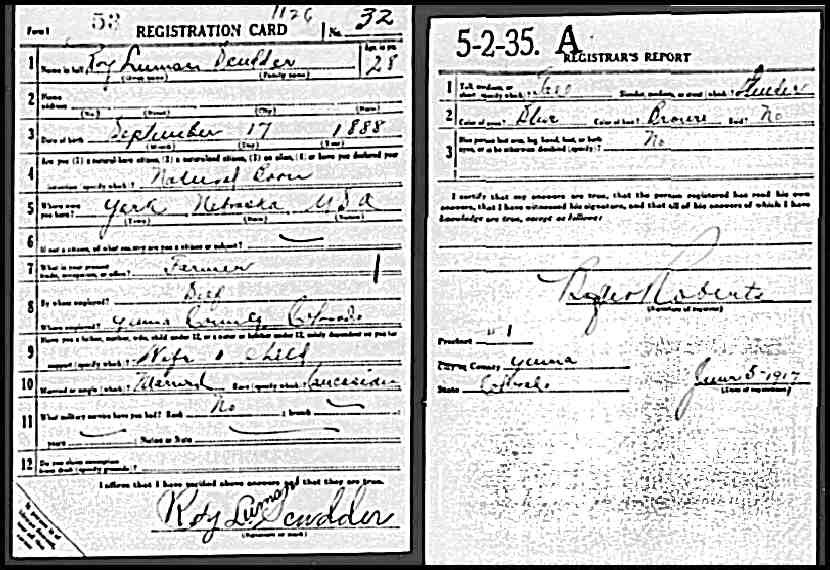 Form 1 53 REGISTRATION CARD 1126 No. 32
1 Name in full Roy Luman Scudder Age, in yrs. 28
(Given name) (Family name)
2 Home address
(No.) (Street) (City) (State)
3 Date of birth September 17 1888
(Month) (Day) (Year)
Are you (1) a natural-born citizen, (2) a naturalized citizen, (3) an alien, (4) or have you declared your
4 intention (specify which)? Natural Born
5 Where were you born? York Nebraska USA
(Town) (State) (Nation)
6 If not a citizen, of what country are you a citizen or subject?
7 What is your present trade, occupation, or office? Farmer 1
8 By whom employed? Self
Where employed? Yuma County Colorado
Have you a father, mother, wife, child under 12, or a sister or brother under 12, solely dependent on you for
9 support (specify which)? Wife & child
10 Married or single (which)? Married Race (specify which)? Caucasian
11 What military service have you had? Rank No ; branch ;
years ; Nation or State
12 Do you claim exemption from draft (specify grounds)?
I affirm that I have verified above answers and that they are true.
Roy Luman Scudder
(Signature or mark)
5-2-35. A
REGISTRAR'S REPORT
1 Tall, medium, or short (specify which)? Slender, medium, or stout (which)? Slender
2 Color of eyes? Blue Color of hair? Brown Bald? No
3 Has person lost arm, leg, hand, foot, or both eyes, or is he otherwise disabled (specify)? No
I certify that my answers are true, that the person registered has read his own
answers, that I have witnessed his signature, and that all of his answers of which I have
knowledge are true, except as follows:
Roberts
(Signature of registrar)
Precinct #1
City or County Yuma
State Colorado June 5-1917
(Date of registration)